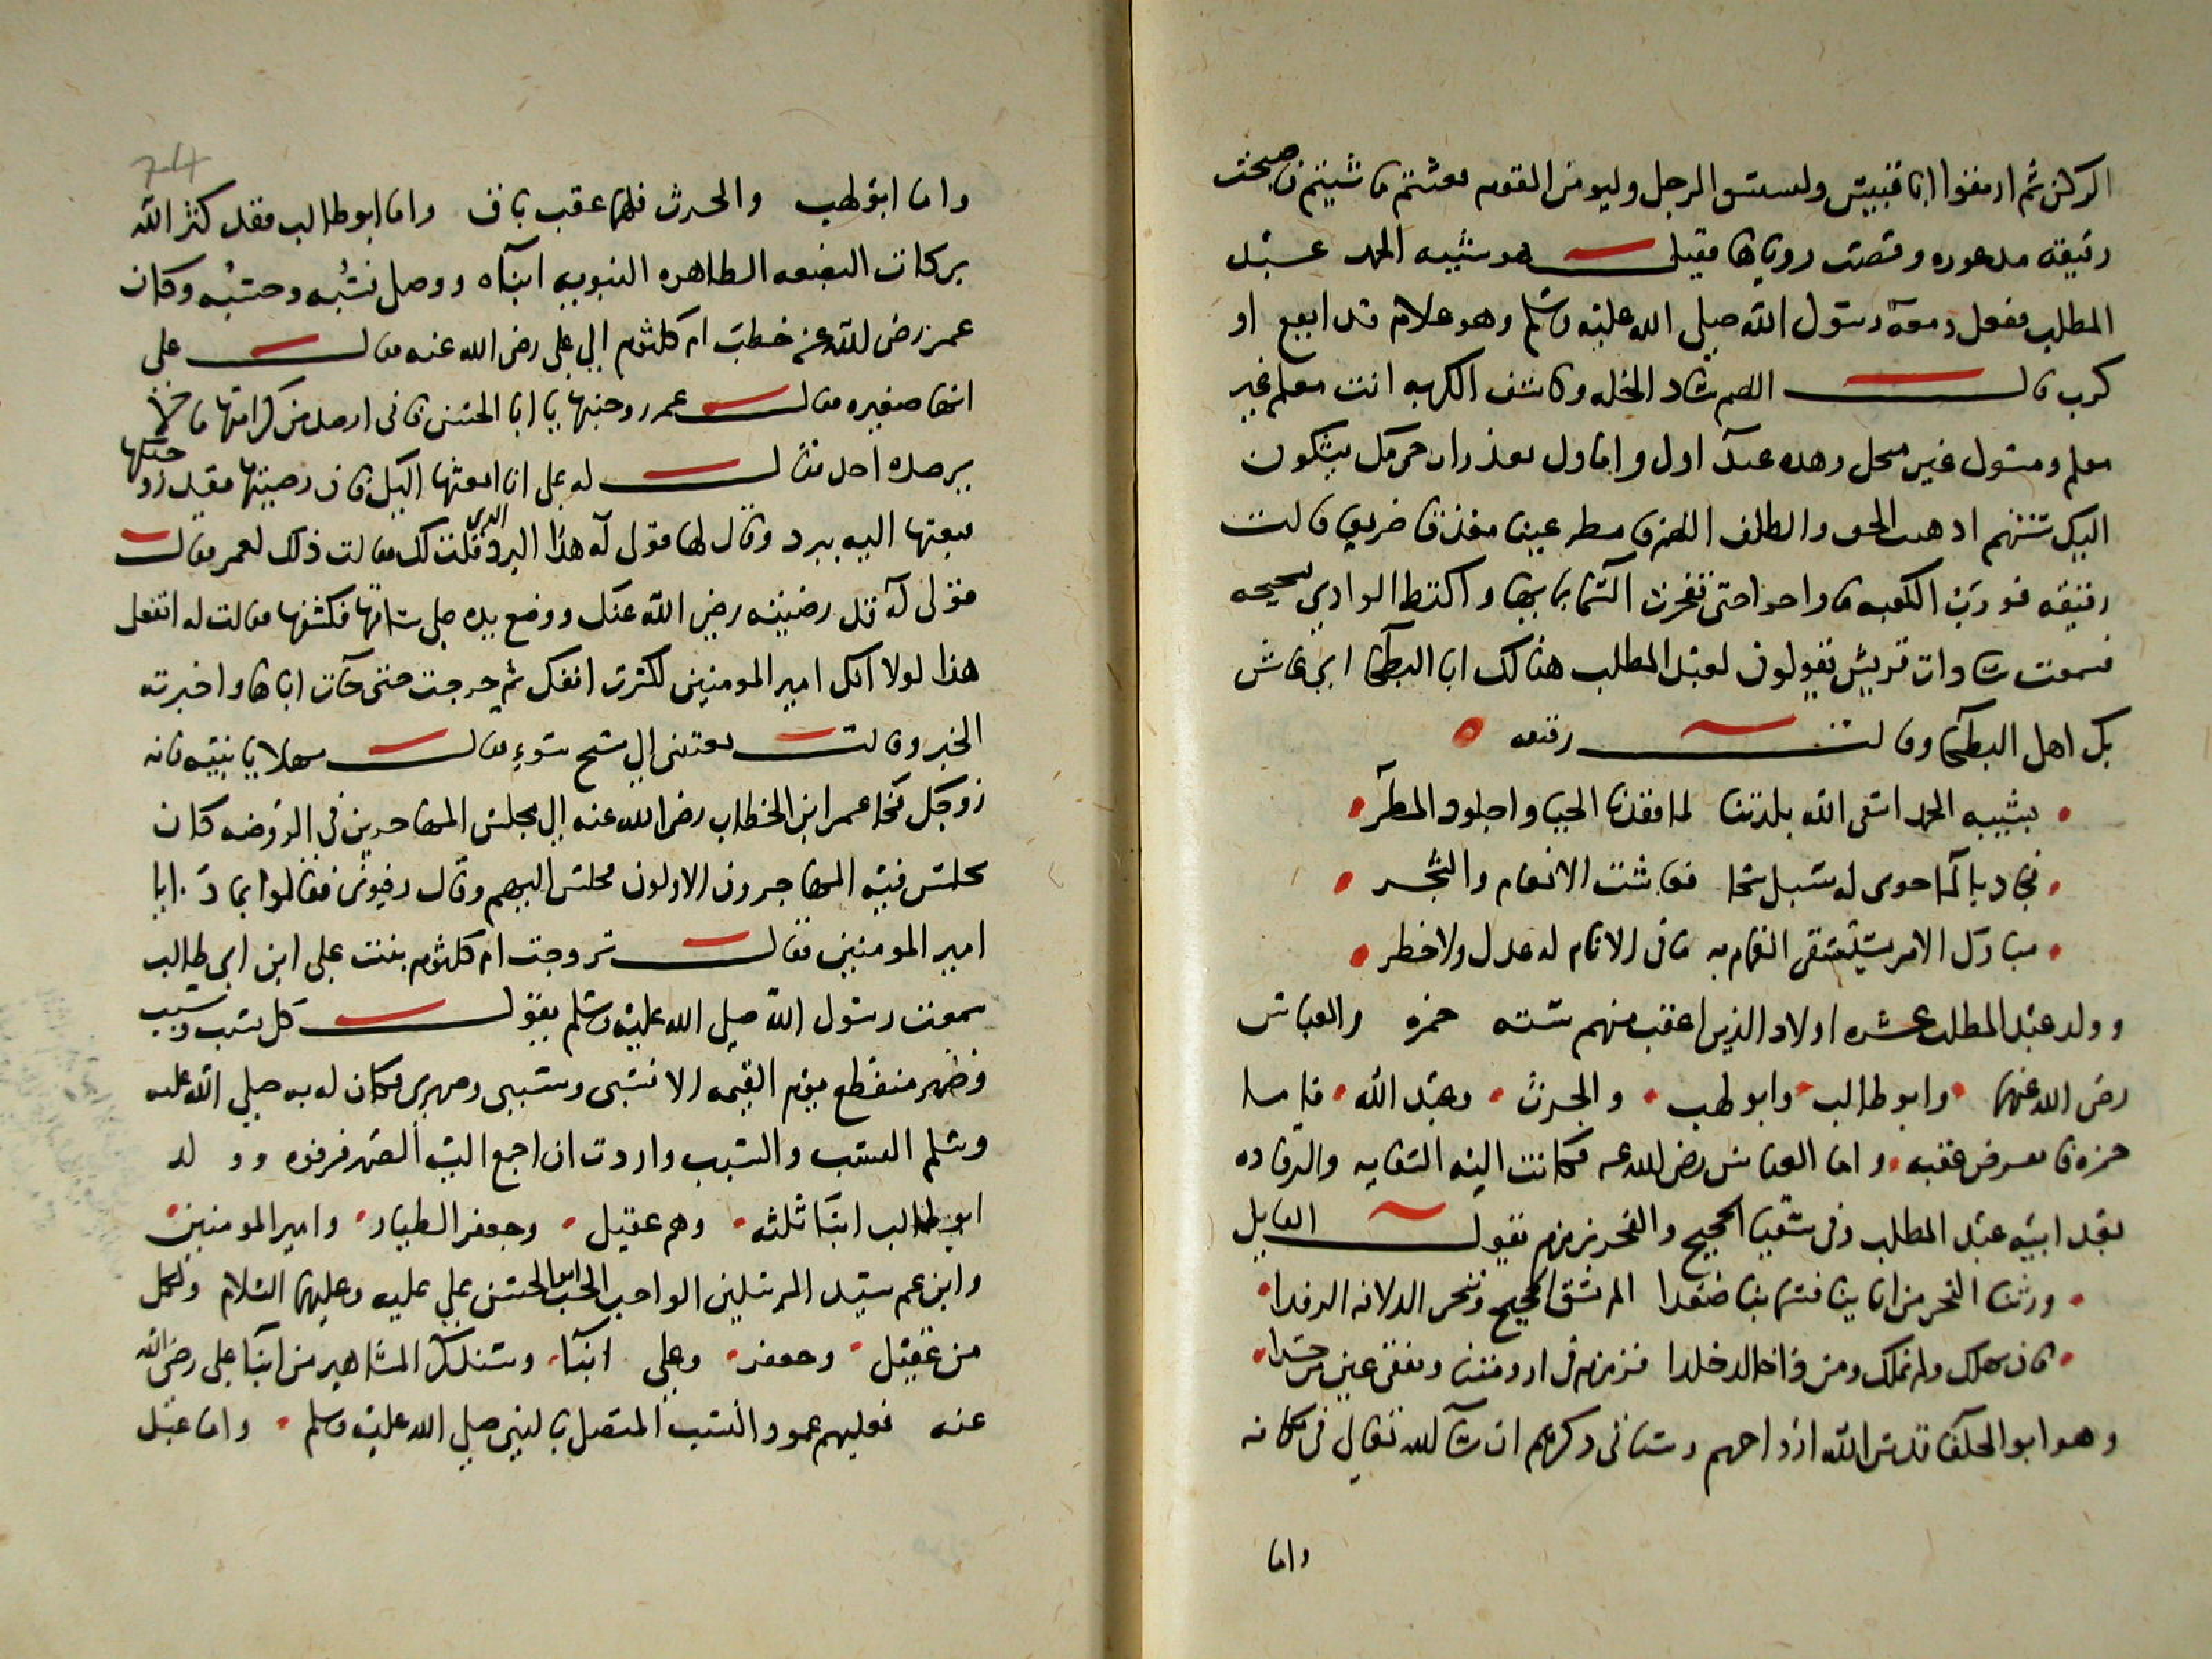 الركن ثم ارتقوا ابا قبيس وليستسق الرجل وليومن القوم فعشتم ما شيتم فاصبحت
رقيقه مذعوره وقصت روياها فقيل هو شيبه الحمد عبد
المطلب ففعل ومعه رسول الله صلى الله عليه وسلم وهو غلام قد ايفع او
كرب قال اللهم ساد الخله وكاشف الكربه انت معلم غير
معلم ومسول غير مبخل وهذه عبداول واماول بعذرات حرمك يشكون
اليك سنتهم اذهبت الخف والظلف اللهم فامطر علينا مغدقا مريعا قالت
رقيقه فورب الكعبه ما راحوا حتى تفجرت السما بمايها واكتظ الوادي بثجيجه
فسمعت سادات قريش يقولون لعبد المطلب هنالك ابا البطحا اي عاش
بك اهل البطحا وقالت رقيقه
بشيبه الحمد اسقى الله بلدتنا لما فقدنا الحيا واجلوذ المطر
فجاد بالما جوى له سبل سحا فعاشت الانعام والشجر
مبارك الامر يستسقى الغمام به ما فى الانام له عدل ولا خطر
وولد عبد المطلب عشره اولاد الذين اعقب منهم سته حمزه والعباس
رضى الله عنهما وابو طالب وابو لهب والحرث وعبد الله فاما
حمزه فانقرض عقبه واما العباس رضى الله عنه فكانت اليه السقايه والرفاده
بعد ابيه عبد المطلب وفى سقيا الحجيج والفخر بزمزم يقول القايل
ورثنا الفخر من اباينا فسما بنا صعدا الم نسق الحجيج وننحر الدلافه الرفدا
فان نهلك ولم نملك ومن ذا خالد خلدا فزمزم فى ارومتنا ونفقى عين من حسدا
وهو ابو الخلفا قدس الله ارواحهم وسياتى ذكرهم ان شا الله تعالى فى مكانه
واما
واما ابو لهب والحرث فلهما عقب باق واما ابو طالب فقد كثر الله
ببركات البضعه الطاهره النبويه ابناه ووصل نسبه وحسبه وكان
عمر رضى الله عنه خطب ام كلثوم الى على رضى الله عنه فقال على
انها صغيره فقال عمر زوجنيها يا ابا الحسن فانى ارصد من كرامتها ما لا
يرصده احد فقال له على انا ابعثها اليك فان رضيتها فقد زوجتكها
فبعثها اليه ببرد وقال لها قولى له هذا البرد الذى قلت لك فقالت ذلك لعمر فقال
قولى له قد رضيته رضى الله عنك ووضع يده على ساقها فكشفها فقالت له اتفعل
هذا لولا انك امير المومنين لكسرت انفك ثم خرجت حتى جات اباها واخبرته
الخبر وقالت بعثتنى الى شيخ سوء فقال مهلا يا بنيه فانه
زوجك فجا عمر ابن الخطاب رضى الله عنه الى مجلس المهاجرين فى الروضه كان
يجلس فيه المهاجرون الاولون فجلس اليهم وقال رفيونى فقالوا بماذا يا
امير المومنين فقال تزوجت ام كلثوم بنت على ابن ابى طالب
سمعت رسول الله صلى الله عليه وسلم يقول كل نسب وسبب
وصهر منقطع يوم القيمه الا نسبى وسببى وصهرى فكان له به صلى الله عليه
وسلم النسب والسبب واردت ان اجمع اليه الصهر فرفوه وولد
ابى طالب ابنا ثلثه وهم عقيل وجعفر الطيار وامير المومنين
وابن عم سيد المرسلين الواجب الحب ابو الحسن على عليه وعليهما السلام ولكل
من عقيل وجعفر وعلى ابنا وسنذكر المشاهير من ابنا على رضى الله
عنه فعليهم عمود النسب المتصل بالنبى صلى الله عليه وسلم واما عبد